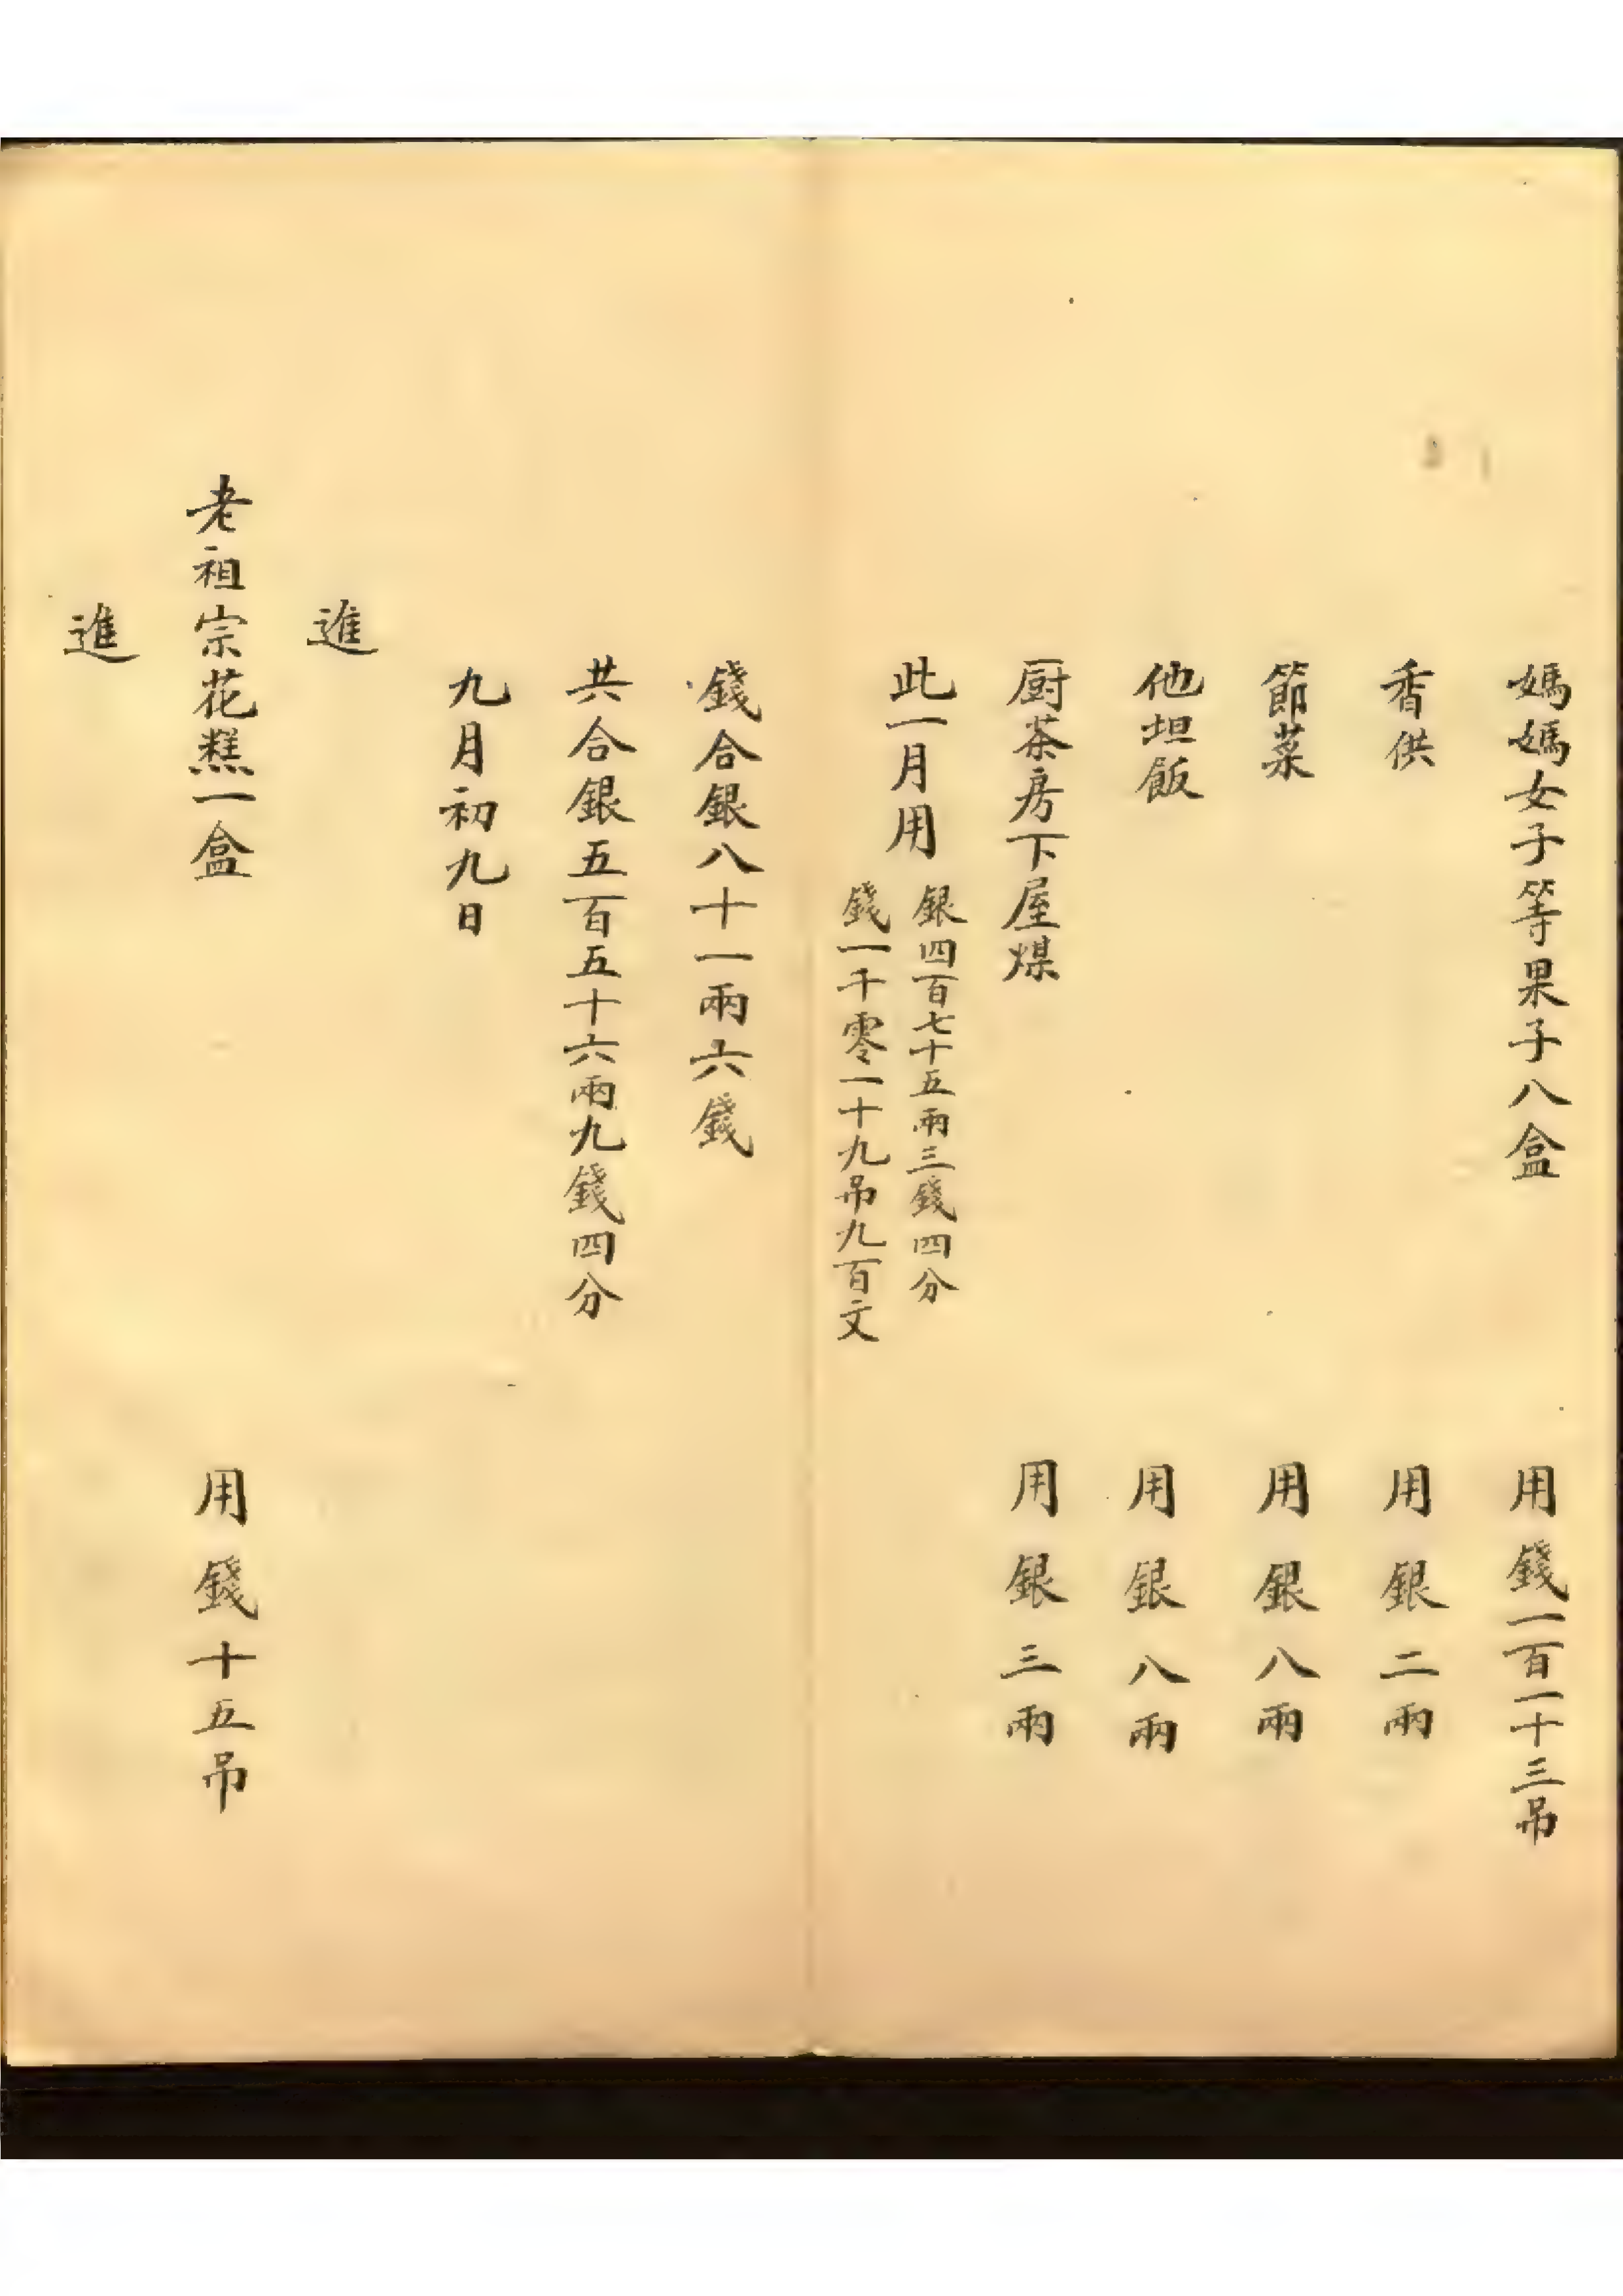 媽媽女子等果子八盒 用錢一百一十三吊
香供 用銀二兩
節菜 用銀八兩
他坦飯 用銀八兩
厨茶房下屋煤 用銀三兩
此一月用
銀四百七十五兩三錢四分
錢一千零一十九吊九百文
錢合銀八十一兩六錢
共合銀五百五十六兩九錢四分
九月初九日
進
老祖宗花糕一盒 用錢十五吊
進